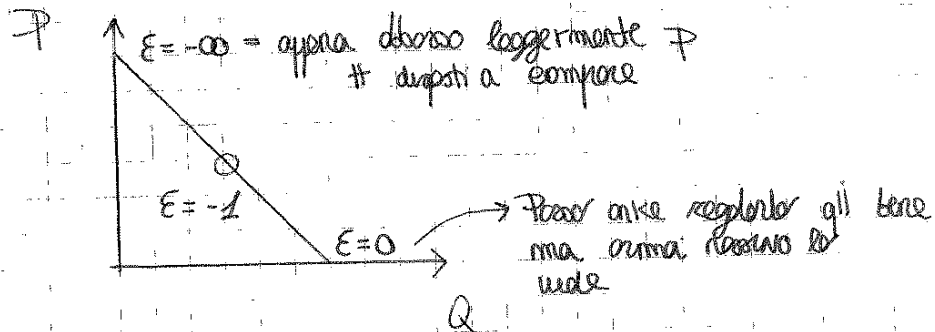 P
ε=-∞ = appena abbasso leggermente P
tt disposti a comprare
ε=-1
ε=0
Posso anke regalarlo gli bene
ma ormai nessuno lo
vuole
Q